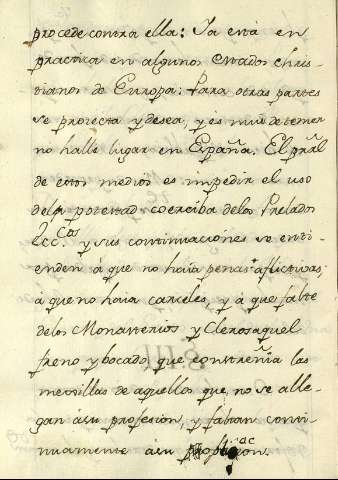 procede contra ella: Ya está en
practica en algunos Estados Chris-
tianos de Europa: Para otras partes
se proiecta y desea, y es mui de temer
no halle lugar en España. El prãl
de estos medios es impedir el uso
dela potestad coerciba delos Prelados
Ecc.cos y sus continuaciones se enti-
enden á que no haia penas aflictivas;
á que no haia carceles, y á que falte
delos Monasterios y Cleros aquel
freno y bocado que constreñia las
mexillas de aquellos que no se alle-
gan á su profesion, y faltan conti-
nuamente á su